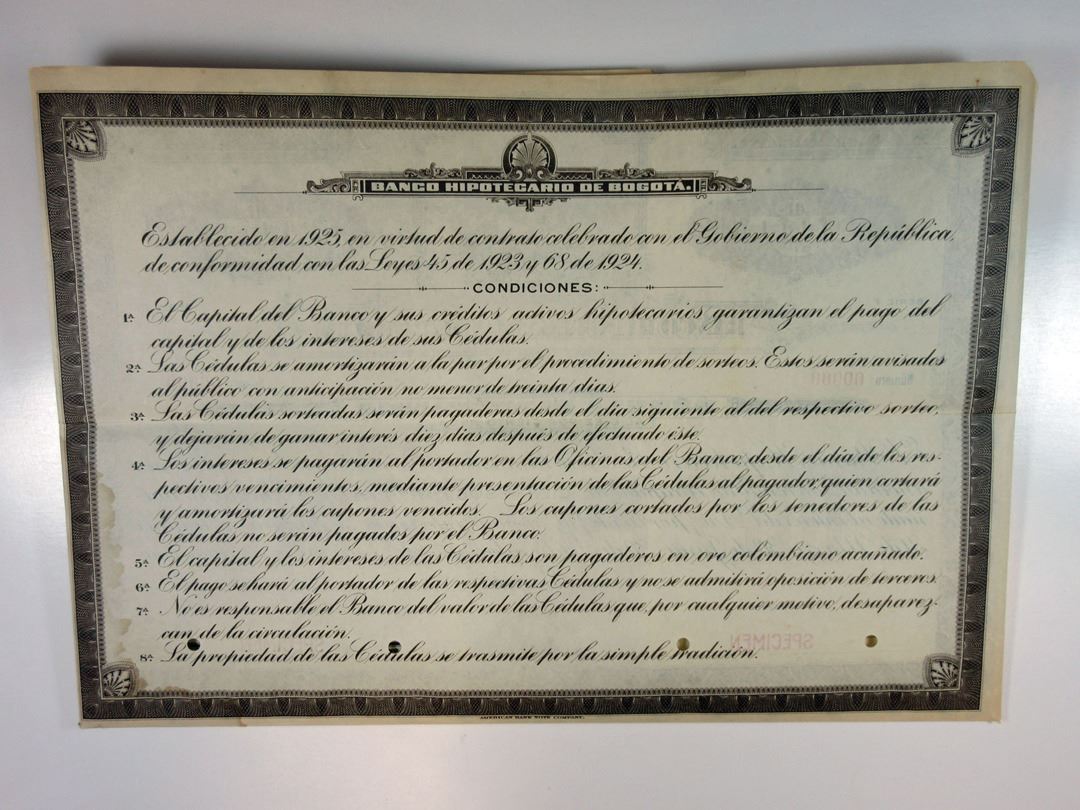 BANCO HIPOTECARIO DE BOGOTÁ.
Establecido en 1925, en virtud de contrato celebrado con el Gobierno de la República,
de conformidad con las Leyes 45 de 1923 y 68 de 1924.
CONDICIONES:
1ª El Capital del Banco y sus créditos activos hipotecarios garantizan el pago del
capital y de los intereses de sus Cédulas.
2ª Las Cédulas se amortizarán a la par por el procedimiento de sorteos. Estos serán avisados
al público con anticipación no menor de treinta días.
3ª Las Cédulas sorteadas serán pagaderas desde el día siguiente al del respectivo sorteo,
y dejarán de ganar interés diez días después de efectuado éste.
4ª Los intereses se pagarán al portador en las Oficinas del Banco, desde el día de los res-
pectivos vencimientos, mediante presentación de las Cédulas al pagador, quien cortará
y amortizará los cupones vencidos. Los cupones cortados por los tenedores de las
Cédulas no serán pagados por el Banco.
5ª El capital y los intereses de las Cédulas son pagaderos en oro colombiano acuñado.
6ª El pago se hará al portador de las respectivas Cédulas y no se admitirá oposición de terceros.
7ª No es responsable el Banco del valor de las Cédulas que, por cualquier motivo, desaparez-
can de la circulación.
8ª La propiedad de las Cédulas se trasmite por la simple tradición.
SPECIMEN
AMERICAN BANK NOTE COMPANY.